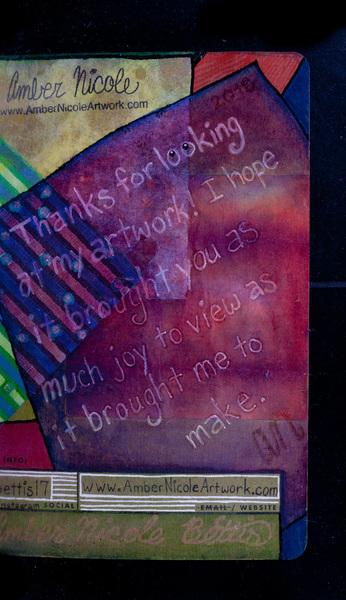 Amber Nicole
www.AmberNicoleArtwork.com
2018
Thanks for looking
at my artwork! I hope
it brought you as
much joy to view as
it brought me to
make.
(INFO)
ettis17
www.AmberNicoleArtwork.com
nstagram SOCIAL
EMAIL / WEBSITE
Amber Nicole Bettis